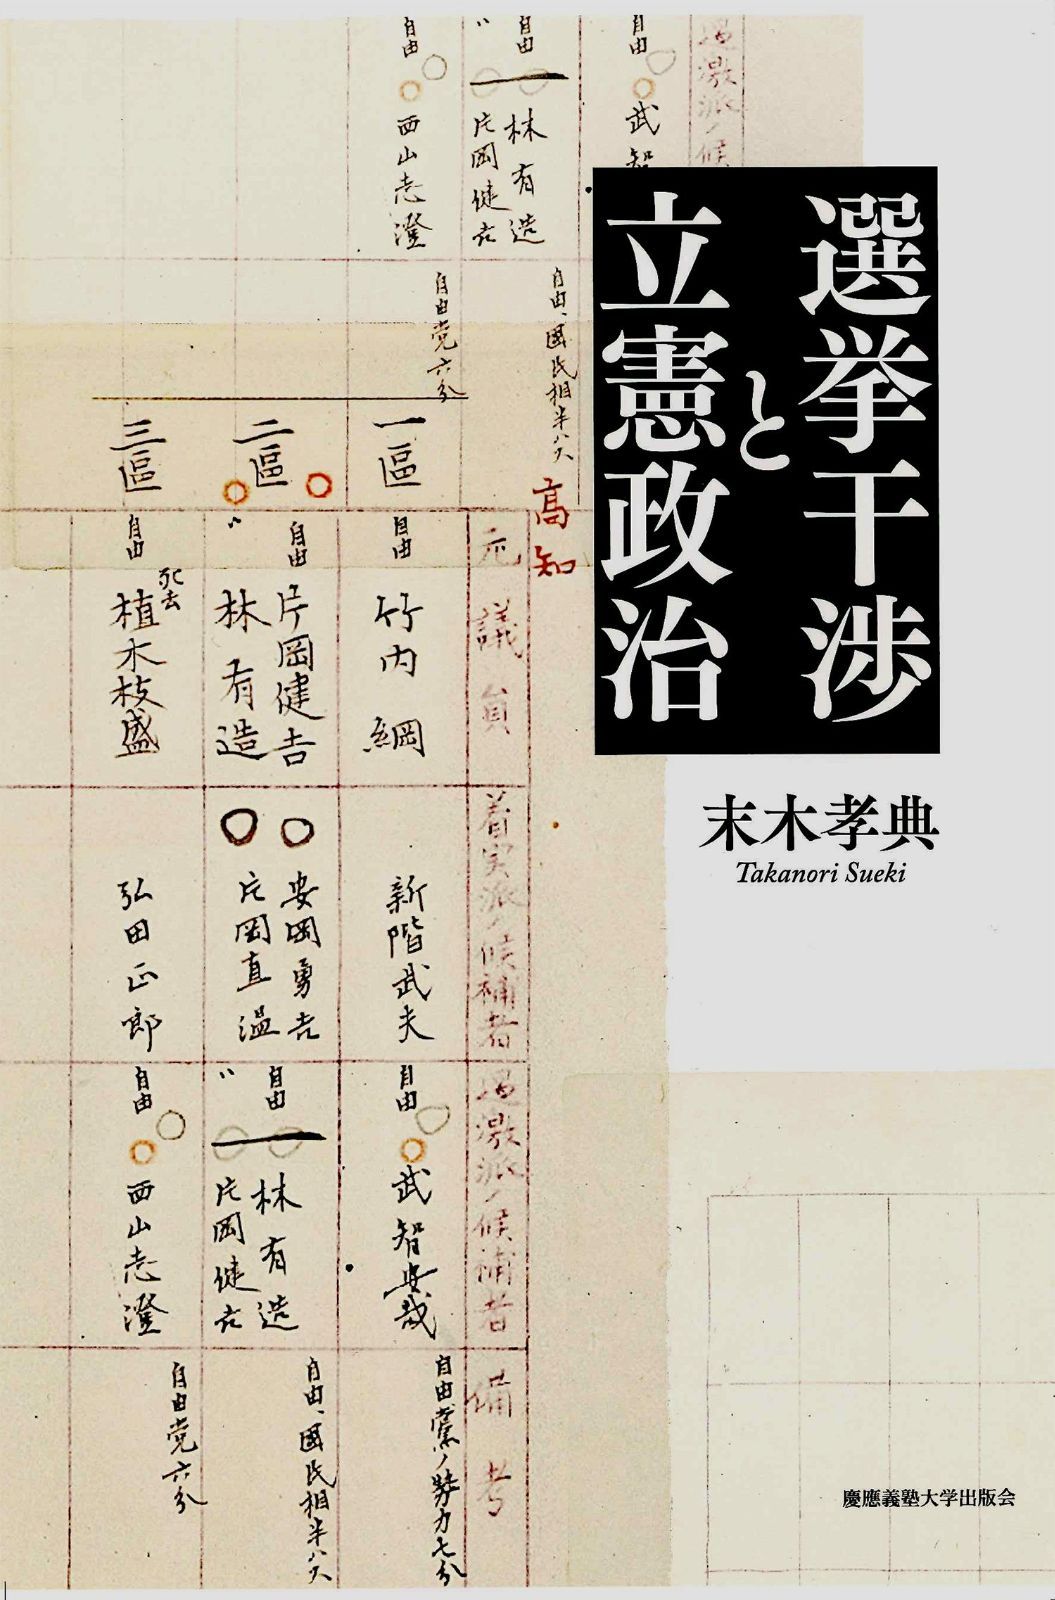 選挙干渉
と
立憲政治
末木孝典
Takanori Sueki
慶應義塾大学出版会
過激派ノ候
自由
武智
自由
〃
林有造
片岡健吉
自由、國民相半ハス
自由
西山志澄
自由党六分
高知
元議員
着実派ノ候補者
過激派ノ候補者
備考
一區
自由
竹内綱
新階武夫
自由
武智安哉
自由党ノ勢力七分
二區
自由
片岡健吉
〃
林有造
安岡勇吉
片岡直温
自由
林有造
〃
片岡健吉
自由、國民相半ハス
三區
自由
死去
植木枝盛
弘田正郎
自由
西山志澄
自由党六分